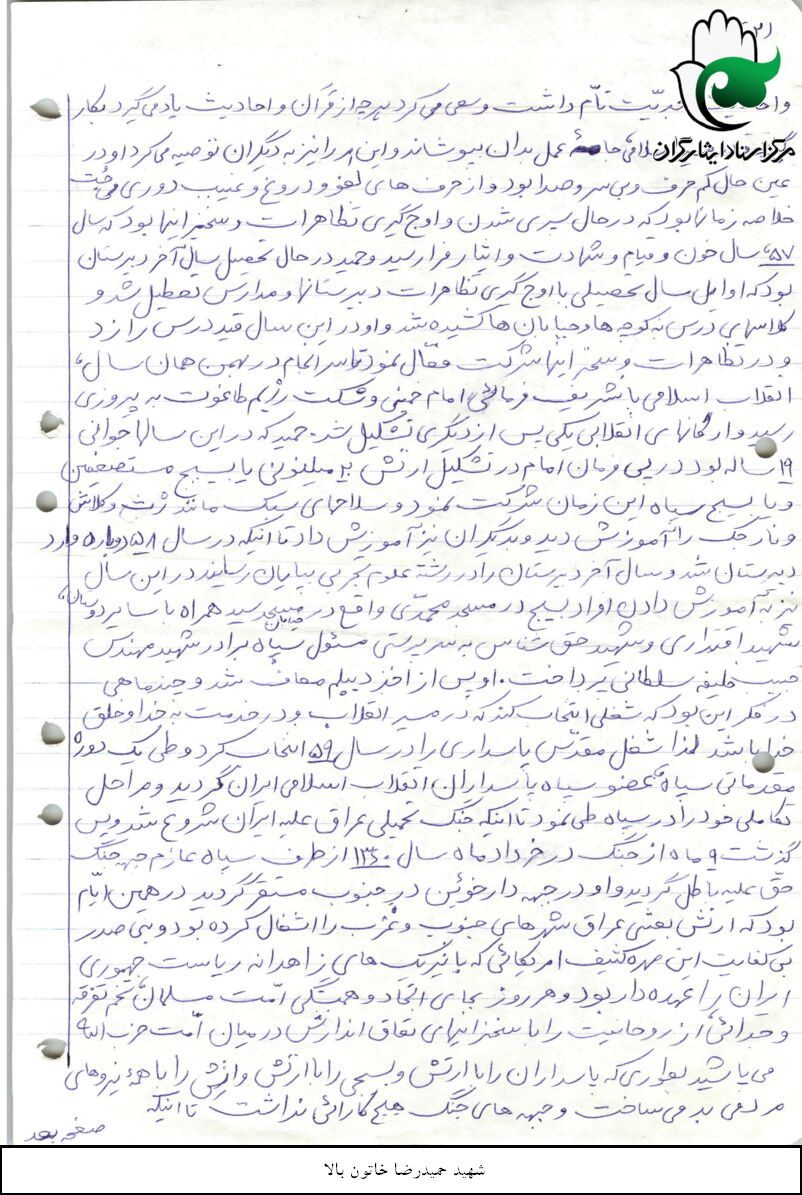 (۲)
مرکز اسناد ایثارگران
و جدیّت تامّ داشت و سعی می کرد هر چه از قرآن و احادیث یاد می گیرد بکار
جامهٔ عمل بدان بپوشاند و این امر را نیز به دیگران توصیه می کرد او در
عین حال کم حرف و بی سر و صدا بود و از حرف های لغو و دروغ و غیبت دوری می جست
خلاصه زمانها بود که در حال سپری شدن و اوج گیری تظاهرات و سخنرانیها بود که سال
۵۷، سال خون و قیام و شهادت و ایثار فرا رسید و حمید در حال تحصیل سال آخر دبیرستان
بود که اوایل سال تحصیلی با اوج گیری تظاهرات دبیرستانها و مدارس تعطیل شد و
کلاسهای درس به کوچه ها و خیابان ها کشیده شد و او در این سال قید درس را زد
و در تظاهرات و سخنرانیها شرکت فعّال نمود تا سرانجام در بهمن همان سال،
انقلاب اسلامی با تشریف فرمائی امام خمینی و شکست رژیم طاغوت به پیروزی
رسید و ارگانهای انقلابی یکی پس از دیگری تشکیل شد. حمید که در این سالها جوانی
۱۹ ساله بود در پی فرمان امام در تشکیل ارتش ۲۰ میلیونی یا بسیج مستضعفین
و یا بسیج سپاه این زمان شرکت نمود و سلاحهای سبک مانند ژ۳ و کلاش
و نارنجک را آموزش دید و به دیگران نیز آموزش داد تا اینکه در سال ۵۸ دوباره وارد
دبیرستان شد و سال آخر دبیرستان را در رشته علوم تجربی بپایان رسانید در این سال
نیز به آموزش دادن افراد بسیج در مسجد محمدّی واقع در خیابان مسجد سید همراه با سایر دوستان،
شهید اقتداری و شهید حق شناس به سرپرستی مسئول سپاه برادر شهید مهندس
حبیب خلیفه سلطانی پرداخت. او پس از اخذ دیپلم معاف شد و چند ماهی
در فکر این بود که شغلی انتخاب کند که در مسیر انقلاب و در خدمت به خدا و خلق
خدا باشد لذا شغل مقدّس پاسداری را در سال ۵۹ انتخاب کرد و طی یک دورهٔ
مقدماتی سپاه عضو سپاه پاسداران انقلاب اسلامی ایران گردید و مراحل
تکاملی خود را در سپاه طی نمود تا اینکه جنگ تحمیلی عراق علیه ایران شروع شد و پس
گذشت ۹ ماه از جنگ در خرداد ماه سال ۱۳۶۰ از طرف سپاه عازم جبهه جنگ
حق علیه باطل گردید و او در جبهه دارخوئین در جنوب مستقر گردید در همین ایّام
بود که ارتش بعثی عراق شهرهای جنوب و غرب را اشغال کرده بود و بنی صدر
بی کفایت این مهره کثیف امریکائی که با نیرنگ های زاهدانه ریاست جمهوری
ایران را عهده دار بود و هر روز بجای اتّحاد و همبستگی امّت مسلمان تخم تفرقه
و جدائی از روحانیت را با سخنرانیهای نفاق اندازش در میان امّت حزب الله
می پاشید بطوری که پاسداران را با ارتش و بسیجی را با ارتش و ارتش را با همهٔ نیروهای
مردمی بد می ساخت و جبهه های جنگ هیچ کارائی نداشت تا اینکه
صفحه بعد
شهید حمیدرضا خاتون بالا